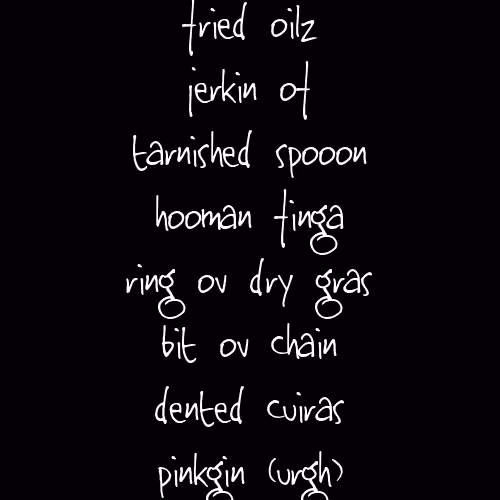 fried oilz
jerkin of
tarnished spooon
hooman finga
ring ov dry gras
bit ov chain
dented cuiras
pinkgin (urgh)